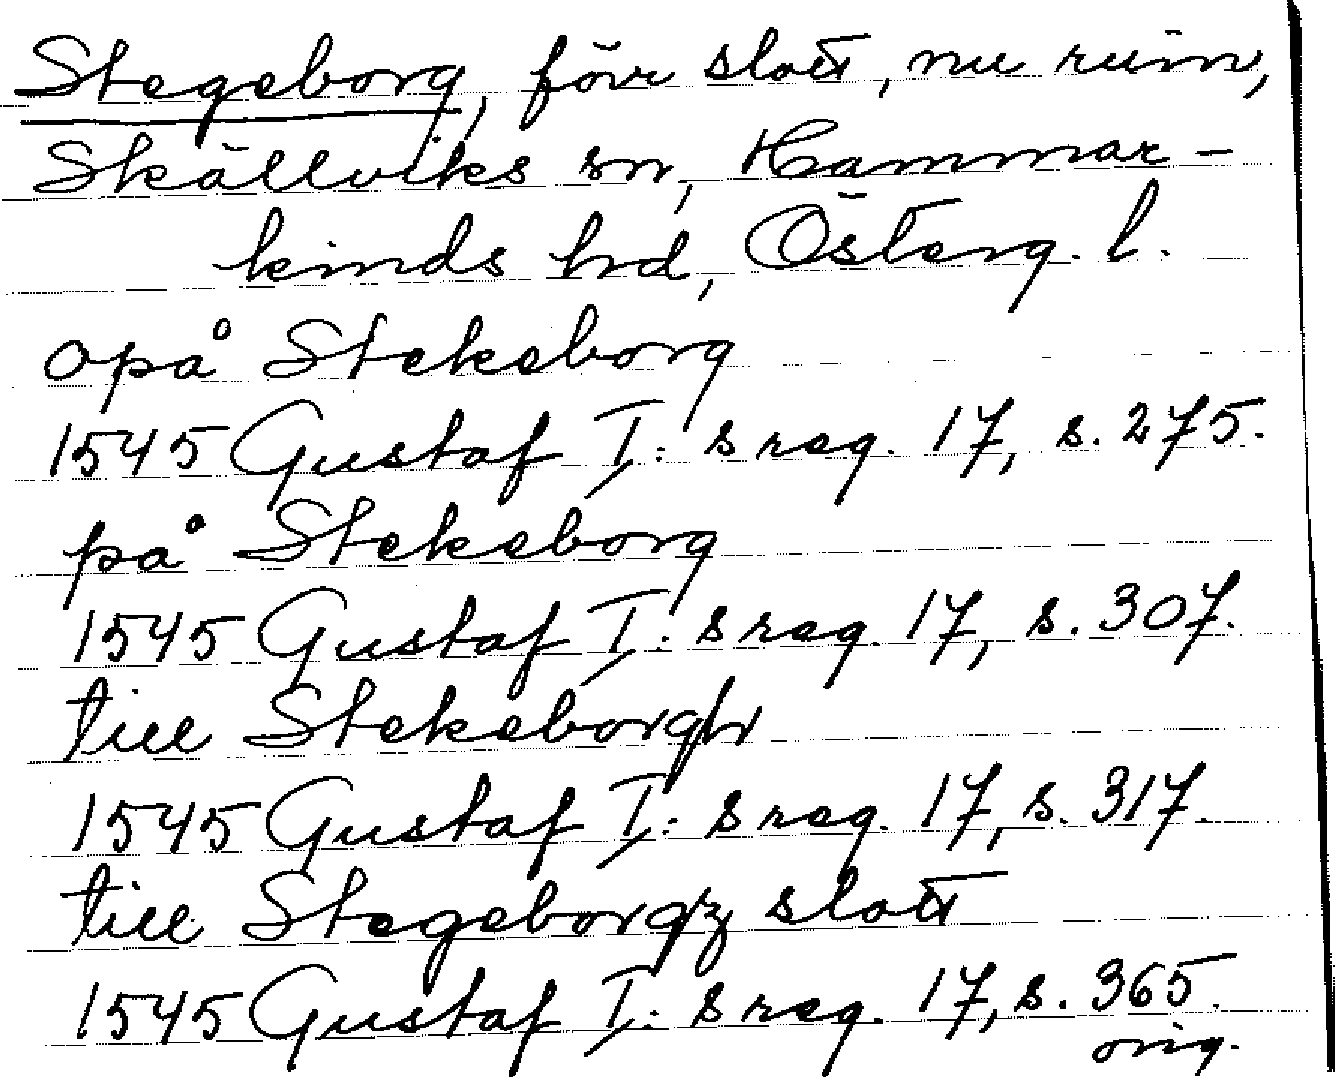 Stegeborg, förr slott, nu ruin,
Skällviks sn, Hammar-
kinds hd, Österg. l.
opå Stekeborg
1545 Gustaf I:s reg. 17, s. 275.
på Stekeborg
1545 Gustaf I:s reg. 17, s. 307.
till Stekeborgh
1545 Gustaf I:s reg. 17, s. 317.
till Stegeborgz slott
1545 Gustaf I:s reg. 17, s. 365.
orig.